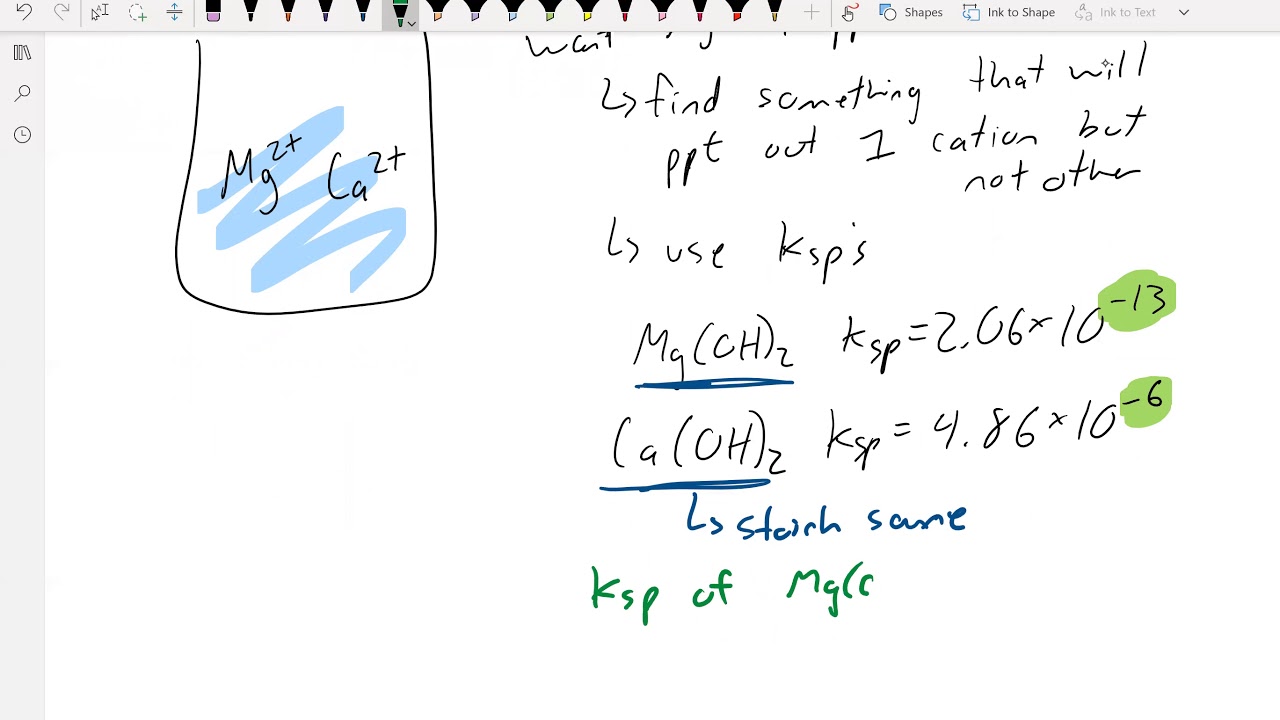 Shapes Ink to Shape Ink to Text
want
↳ find something that will
ppt out 1 cation but
not other
Mg²⁺ Ca²⁺
↳ use Ksp's
Mg(OH)₂ Ksp = 2.06 × 10⁻¹³
Ca(OH)₂ Ksp = 4.86 × 10⁻⁶
↳ stoich same
Ksp of Mg(